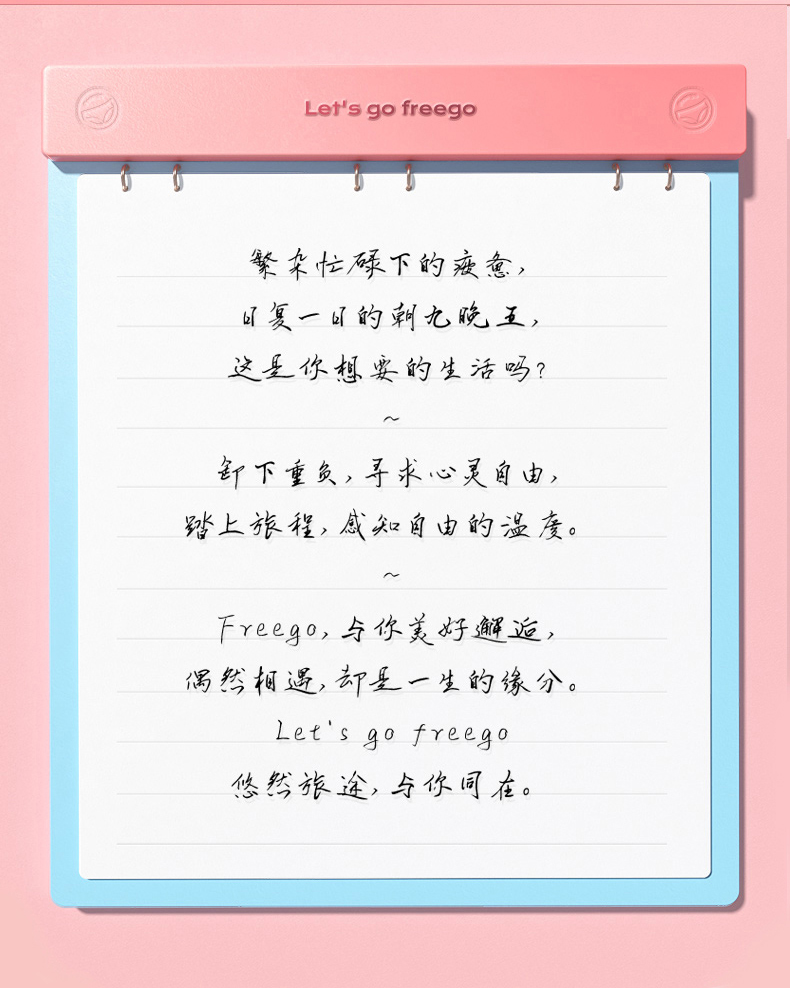 Let's go freego
繁杂忙碌下的疲惫,
日复一日的朝九晚五,
这是你想要的生活吗?
~
卸下重负,寻求心灵自由,
踏上旅程,感知自由的温度。
~
Freego,与你美好邂逅,
偶然相遇,却是一生的缘分。
Let's go freego
悠然旅途,与你同在。